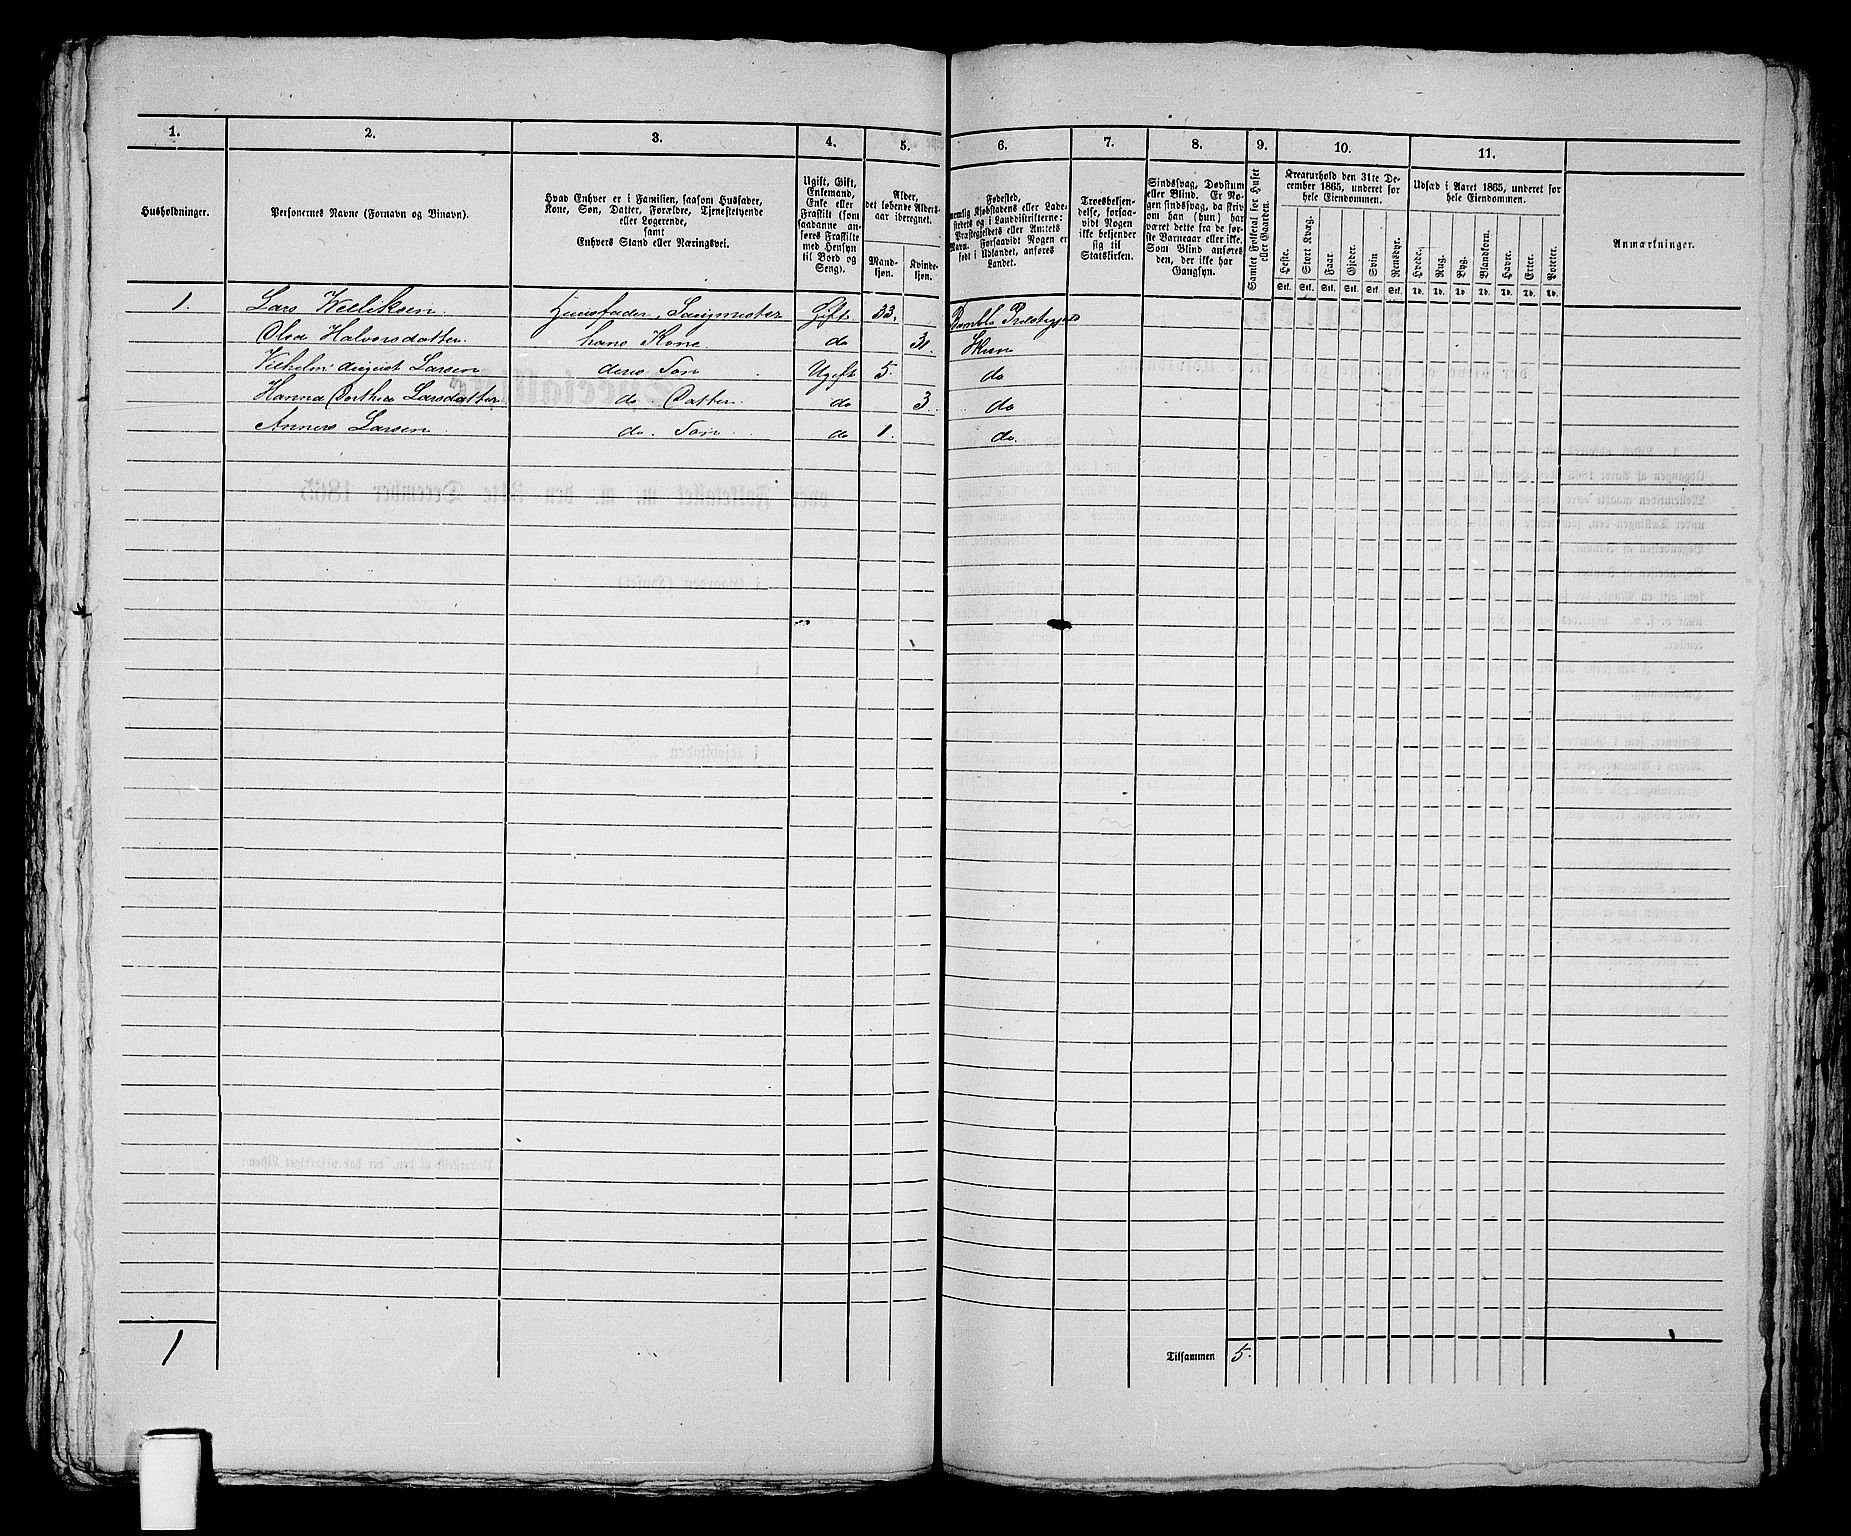 1. 2. 3. 4. 5. 6. 7. 8. 9. 10. 11.
Husholdninger.
Personernes Navne (Fornavn og Binavn).
Hvad Enhver er i Familien, saasom Husfader,
Kone, Søn, Datter, Forældre, Tjenestetyende
eller Logerende,
samt
Enhvers Stand eller Næringsvei.
Ugift, Gift,
Enkemand,
Enke eller
Fraskilt (som
saadanne an-
føres Fraskilte
med Hensyn
til Bord og
Seng).
Alder,
det løbende Alders-
aar iberegnet.
Mand-
kjøn.
Kvinde-
kjøn.
Fødested,
nemlig Kjøbstadens eller Lade-
stedets og i Landdistrikterne:
Præstegjeldets eller Amtets
Navn. Forsaavidt Nogen er
født i Udlandet, anføres
Landet.
Troesbekjen-
delse, forsaa-
vidt Nogen
ikke bekjender
sig til
Statskirken.
Sindssvag, Døvstum
eller Blind. Er No-
gen sindssvag, da skriv
om han (hun) har
været dette fra de før-
ste Barneaar eller ikke.
Som Blind anføres
den, der ikke har
Gangsyn.
Samlet Folketal for Huset
eller Gaarden.
Kreaturhold den 31te De-
cember 1865, underet for
hele Eiendommen.
Heste. Stort Kvæg. Faar. Gjeder. Svin Rensdyr.
Stk. Stk. Stk. Stk. Stk. Stk.
Udsæd i Aaret 1865, underet for
hele Eiendommen.
Hvede. Rug. Byg. Blandkorn. Havre. Erter. Poteter.
Td. Td. Td. Td. Td. Td. Td.
Anmærkninger.
1. Lars Welliksen. Huusfader, Saugmester Gift 33. Bamble Præstegjeld
Olea Halvorsdatter. hans Kone do 31. Skien
Vilhelm August Larsen deres Søn Ugift 5. do
Hanna Dorthea Larsdatter do Datter. do 3. do
Anners Larsen. do. Søn do 1. do.
1
Tilsammen 5.